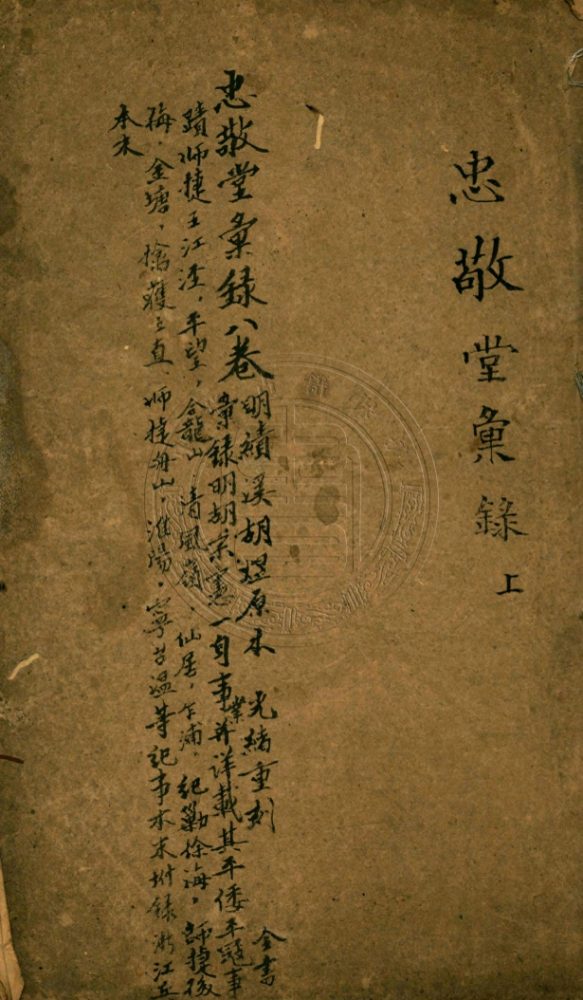 忠敬堂彙錄 上
忠敬堂彙錄八卷 明績溪胡煜原本 光緒重刻 全書
彙錄明胡宗憲一身事業并詳載其平倭平寇事
蹟師捷王江涇，平望，龕山，清風嶺，仙居，乍浦，紀勦徐海，師捷後
梅，金塘，擒獲王直，師捷舟山，淮陽，寧台溫等紀事本末附錄浙江兵
本末